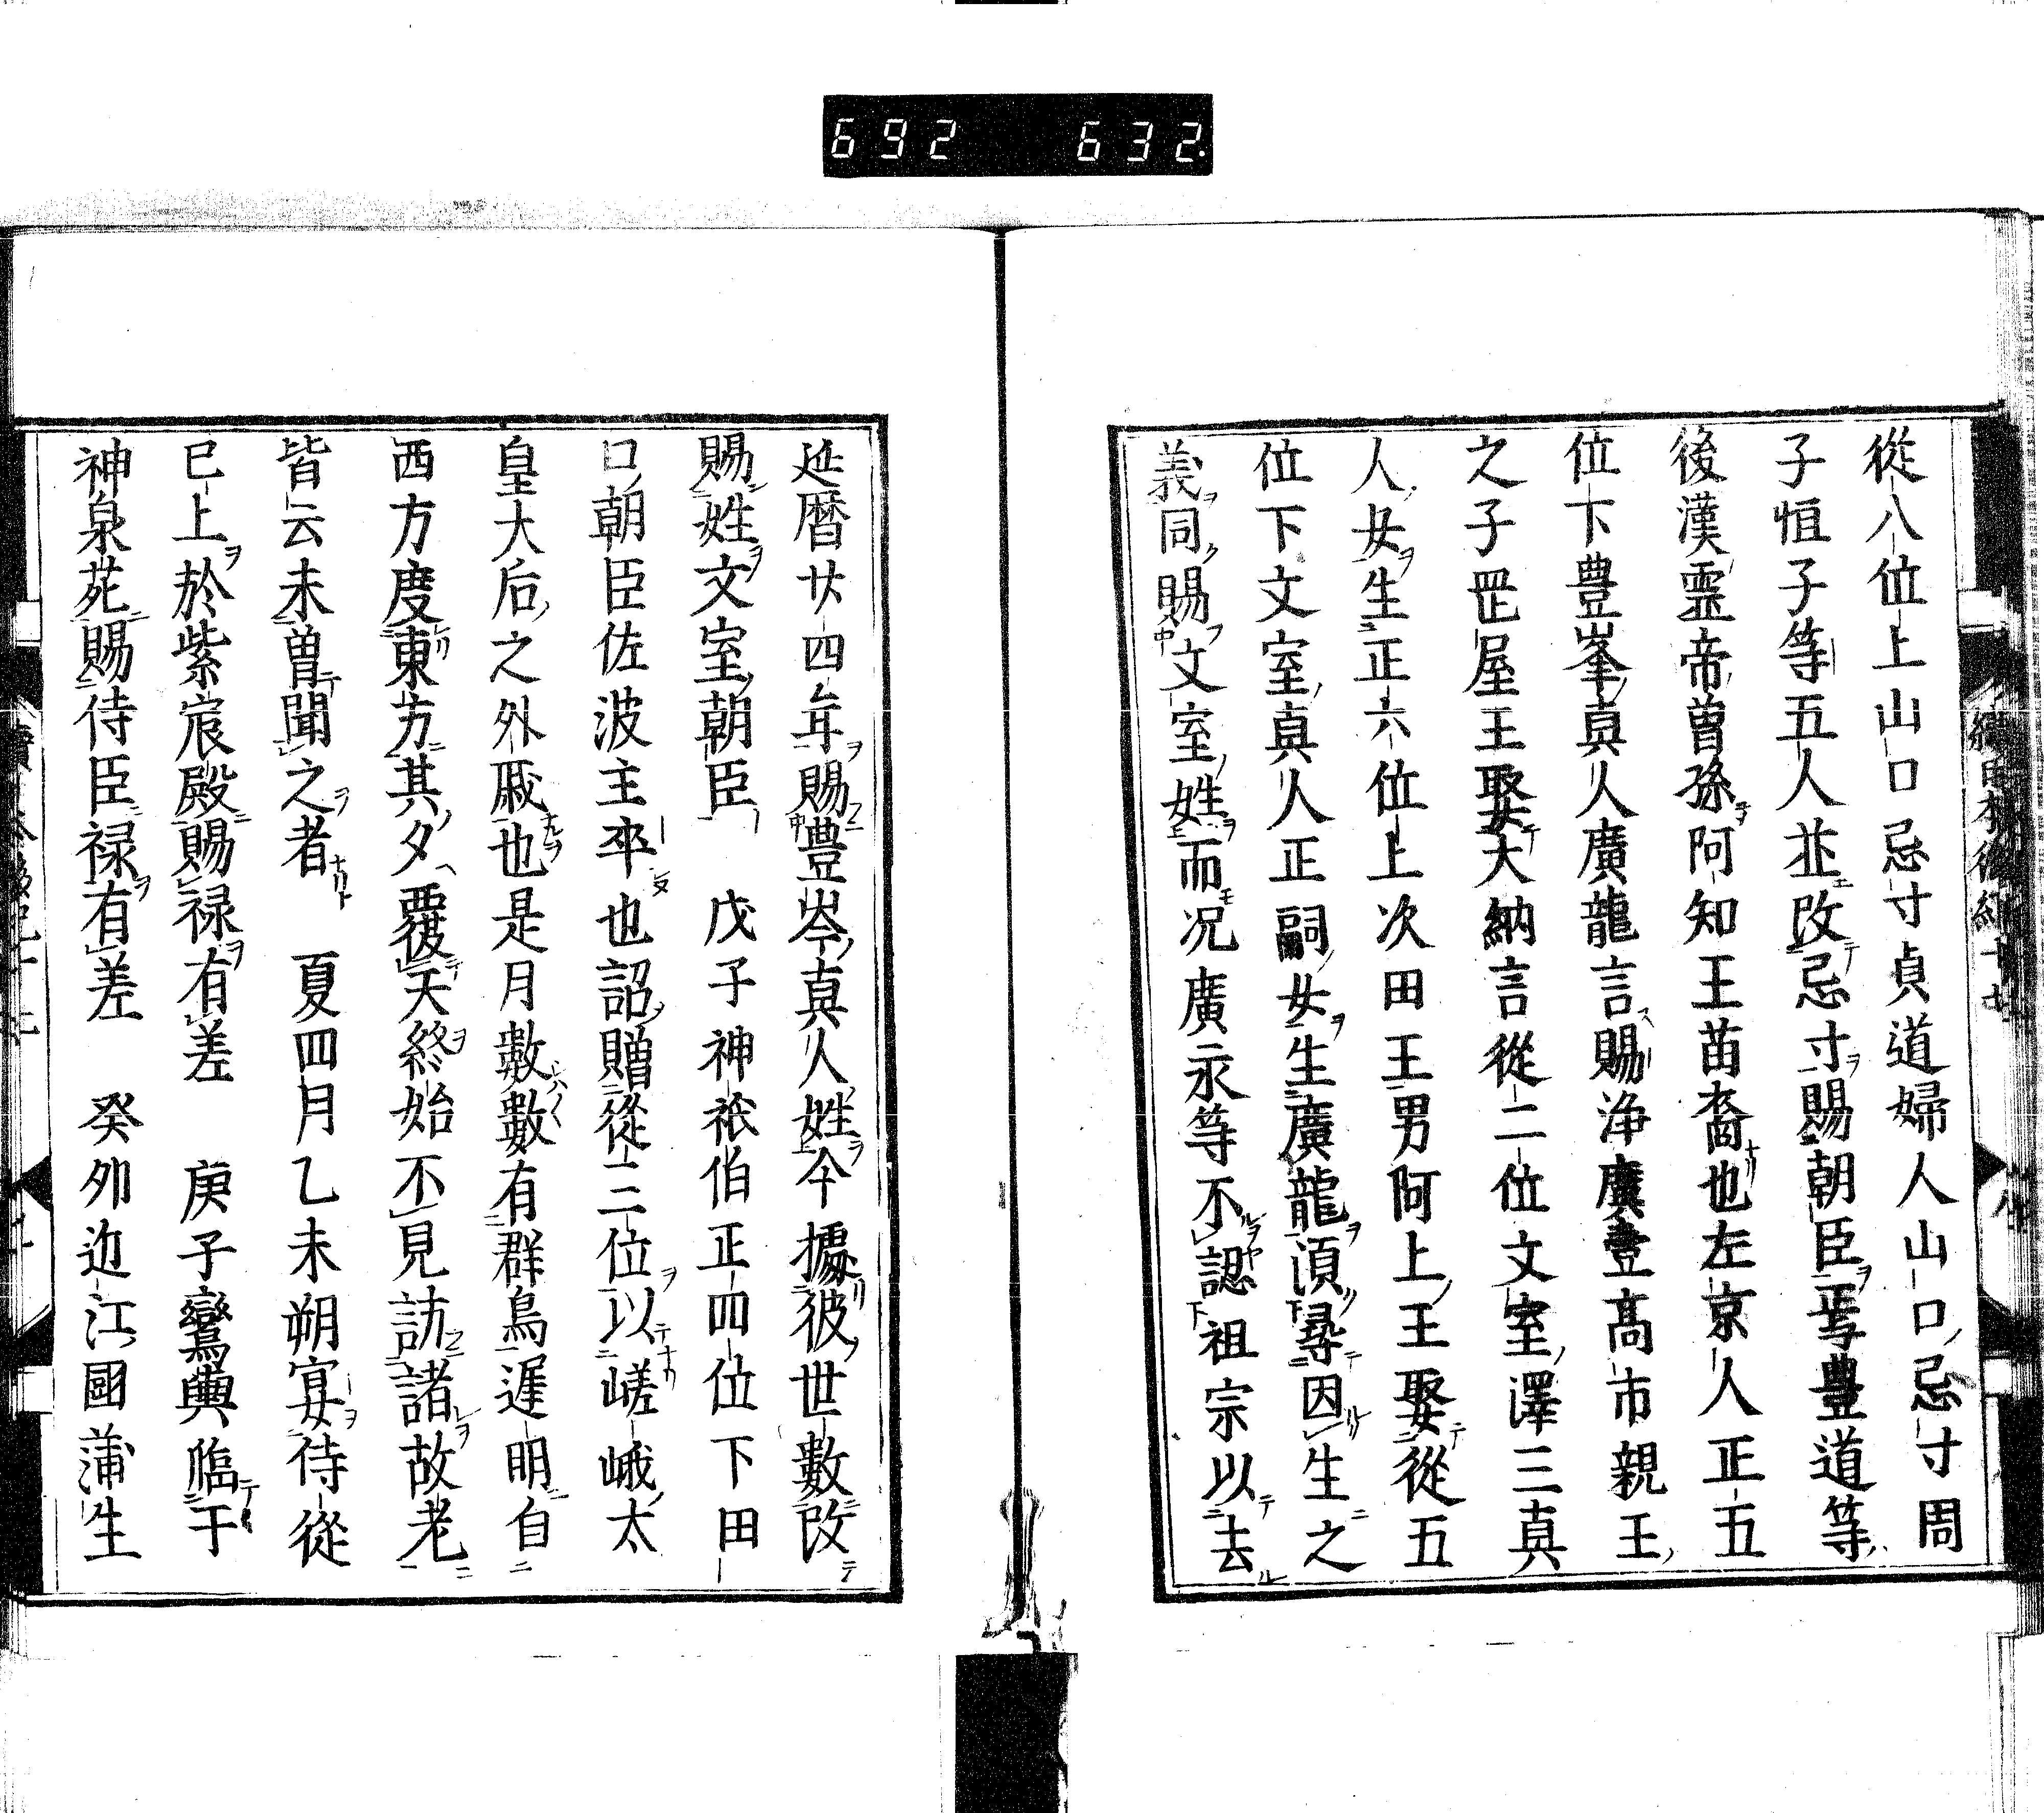 692 632
從八位上山口忌寸貞道婦人山口忌寸周
子恒子等五人並改忌寸賜朝臣焉豊道等
後漢霊帝曽孫阿知王苗裔也左京人正五
位下豊峯真人廣龍言賜浄廣壹髙市親王
之子罡屋王娶大納言從二位文室澤三真
人女生正六位上次田王男阿上王娶從五
位下文室真人正嗣女生廣龍湏尋因生之
義同賜文室姓而况廣永等不認祖宗以去
延暦廿四年賜豊岑真人姓今據彼世數改
賜姓文室朝臣 戊子神祇伯正四位下田
口朝臣佐波主卒也詔贈從三位以嵯峨太
皇大后之外戚也是月數數有群鳥遅明自
西方度東方其夕覆天終始不見訪諸故老
皆云未曽聞之者 夏四月乙未朔宴侍從
已上於紫宸殿賜禄有差 庚子鸞輿臨于
神泉苑賜侍臣禄有差 癸夘近江國蒲生